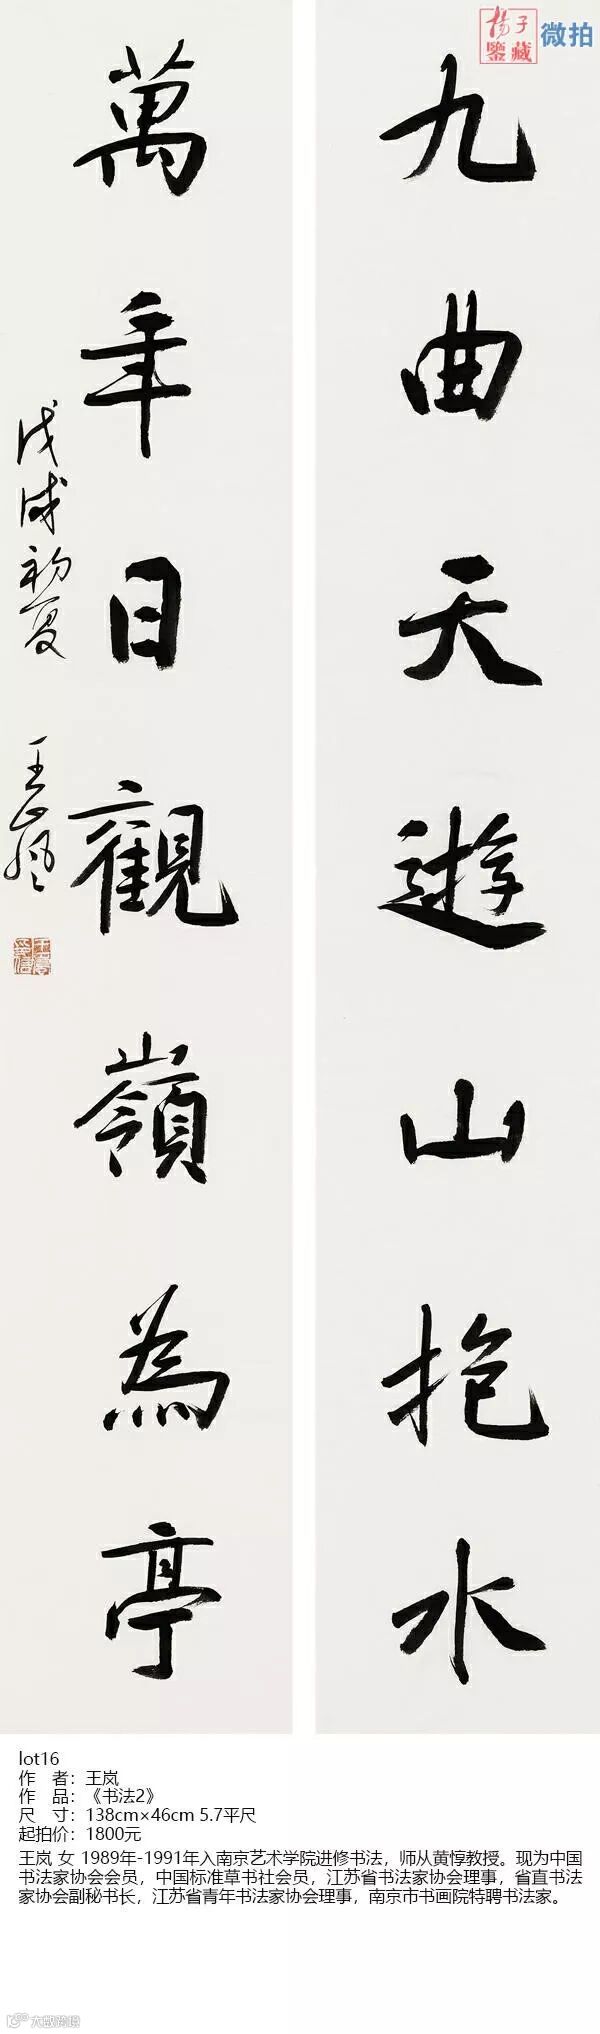 楊子
鑒藏
微拍
九曲天遊山抱水
萬年日觀嶺為亭
戊戌初夏 王嵐
lot16
作 者：王岚
作 品：《书法2》
尺 寸：138cm×46cm 5.7平尺
起拍价：1800元
王岚 女 1989年-1991年入南京艺术学院进修书法，师从黄惇教授。现为中国
书法家协会会员，中国标准草书社会员，江苏省书法家协会理事，省直书法
家协会副秘书长，江苏省青年书法家协会理事，南京市书画院特聘书法家。
大数跨境